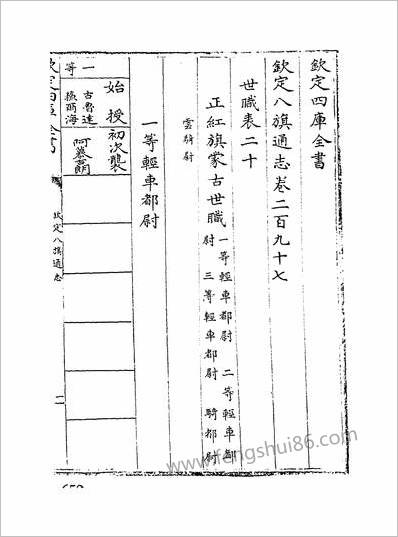 欽定四庫全書
欽定八旗通志卷二百九十七
世職表二十
正紅旗蒙古世職 一等輕車都尉 二等輕車都
尉 三等輕車都尉 騎都尉
雲騎尉
一等輕車都尉
始授 初次襲
一等
古魯達
阿慕爾
欽定八旗通志
www.fengshui86.com